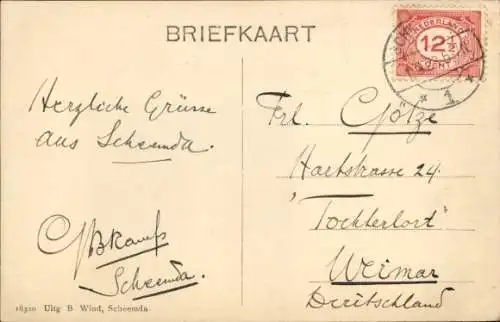 BRIEFKAART
NEDERLAND
12½
CENT
1
Herzliche Grüsse
aus Scheemda.
Scheemda.
Frl. Götze
Hartstrasse 24.
"Tochterlort"
Weimar
Deutschland
18310 Uitg B Wind, Scheemda